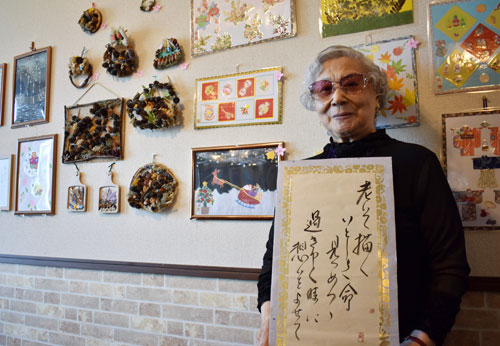 老いて描く
いとしき命
見つめつゝ
過ぎゆく時に
想いをよせて